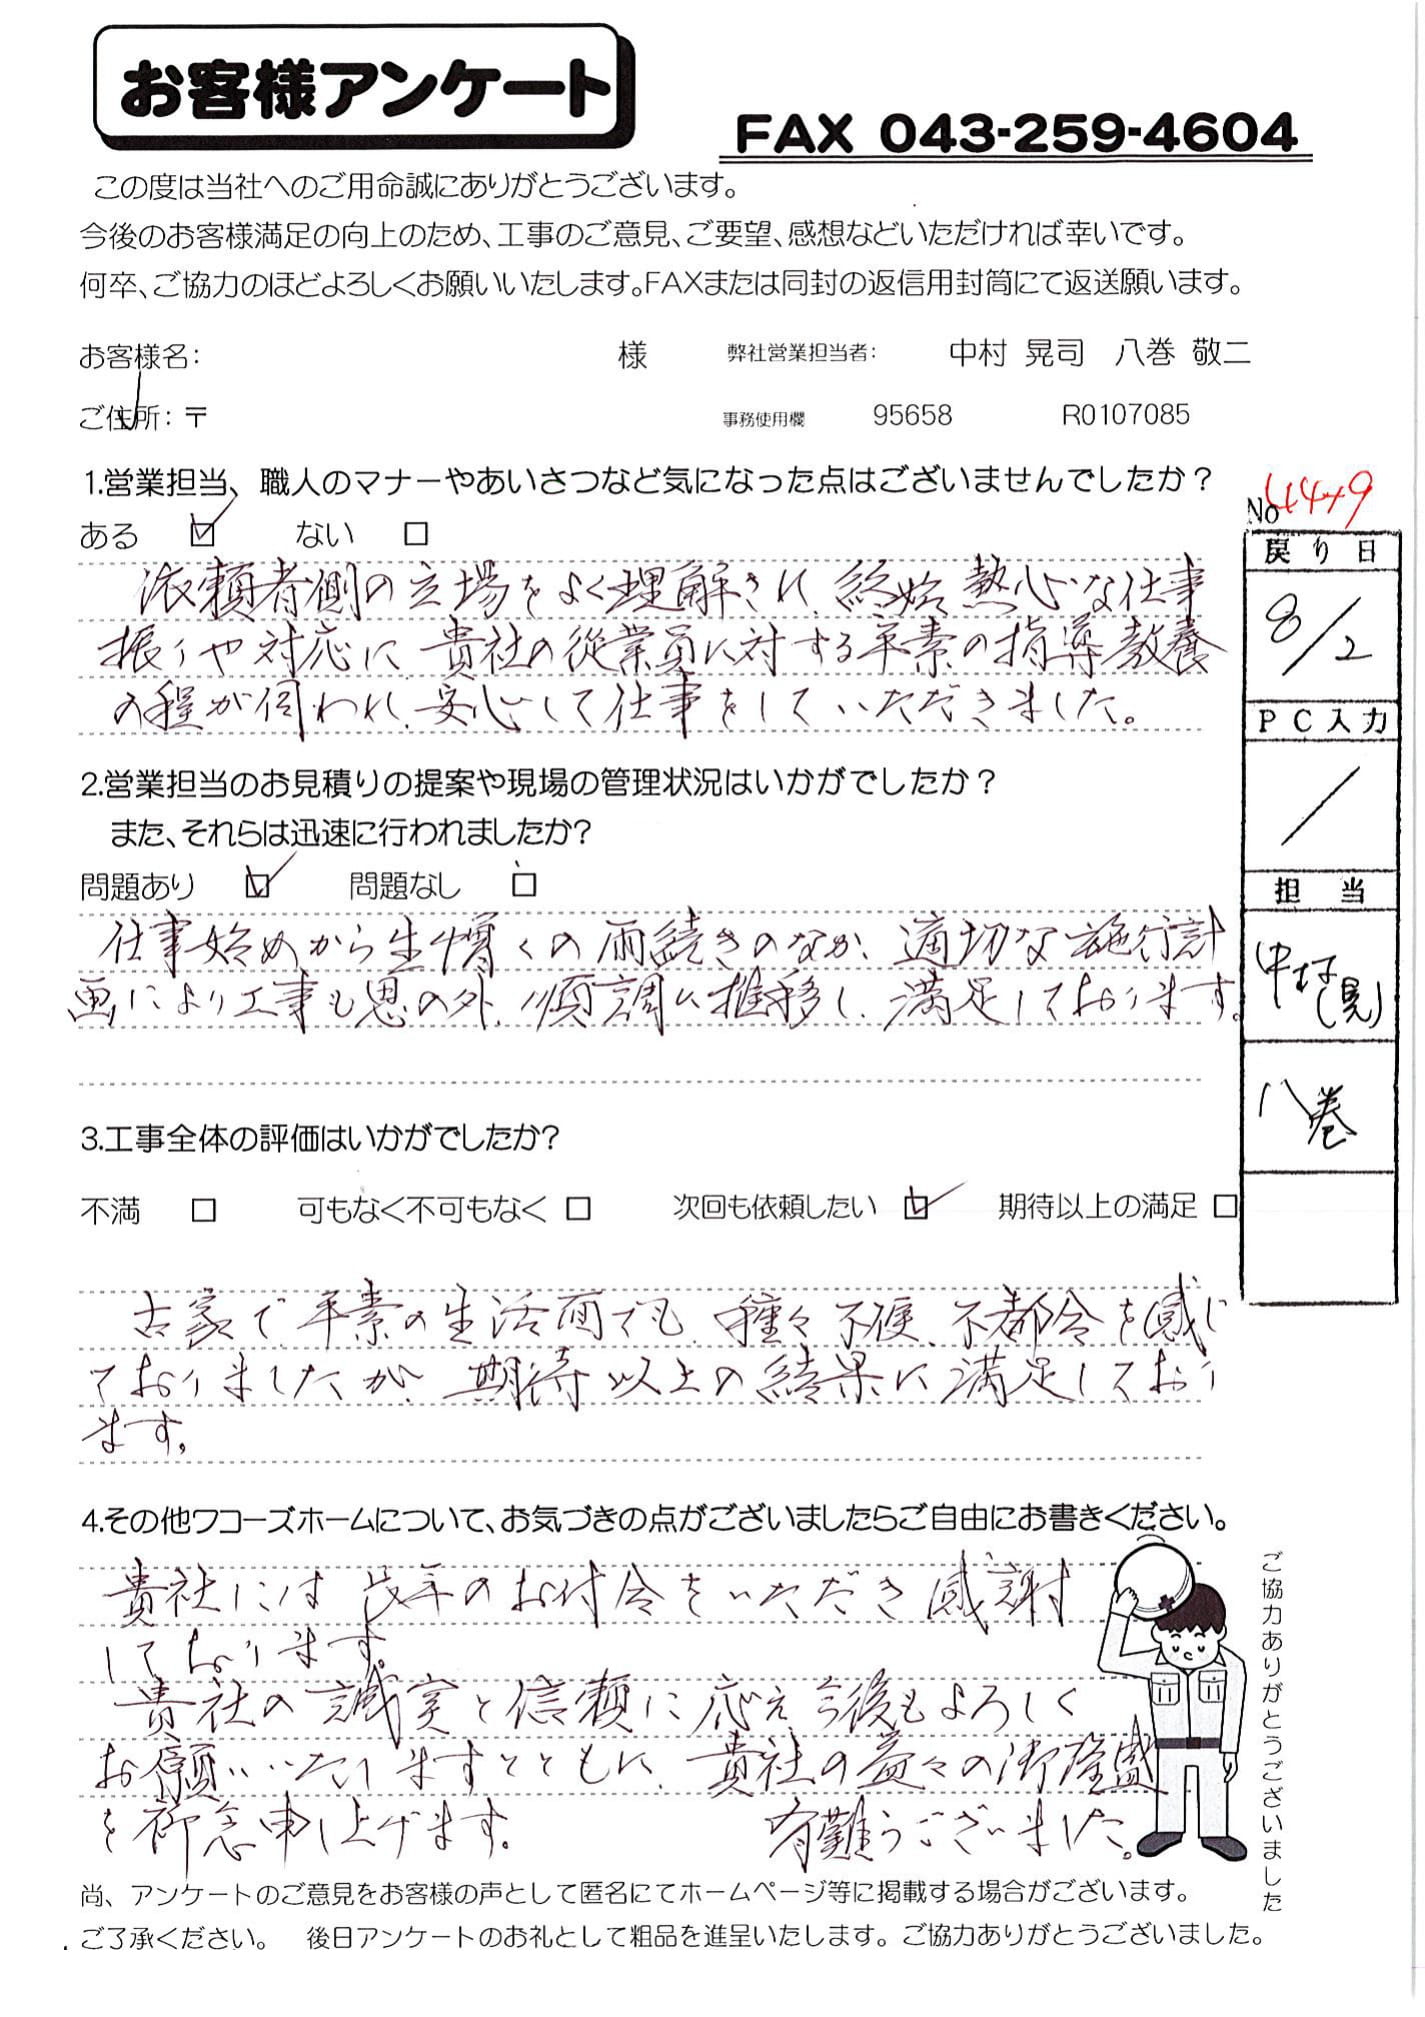 お客様アンケート
FAX 043-259-4604
この度は当社へのご用命誠にありがとうございます。
今後のお客様満足の向上のため、工事のご意見、ご要望、感想などいただければ幸いです。
何卒、ご協力のほどよろしくお願いいたします。FAXまたは同封の返信用封筒にて返送願います。
お客様名: 様 弊社営業担当者: 中村 晃司 八巻 敬二
ご住所:〒 事務使用欄 95658 R0107085
1.営業担当、職人のマナーやあいさつなど気になった点はございませんでしたか?
ある ☑ ない □
依頼者側の立場をよく理解され、終始熱心な仕事
振りや対応に、貴社の従業員に対する平素の指導教養
の程が伺われ、安心して仕事をしていただきました。
2.営業担当のお見積りの提案や現場の管理状況はいかがでしたか?
また、それらは迅速に行われましたか?
問題あり ☑ 問題なし □
仕事始めから生憎くの雨続きのなか、適切な施行計
画により工事も思の外、順調に推移し、満足しております。
3.工事全体の評価はいかがでしたか?
不満 □ 可もなく不可もなく □ 次回も依頼したい ☑ 期待以上の満足 □
古家で、平素の生活面でも、種々不便、不都合を感じ
ておりましたが、期待以上の結果に満足しており
ます。
4.その他ワコーズホームについて、お気づきの点がございましたらご自由にお書きください。
貴社には 永年のお付合をいただき感謝
しております。
貴社の誠実と信頼に応え今後もよろしく
お願いいたしますとともに、貴社の益々の御隆盛
を祈念申し上げます。 有難うございました。
尚、アンケートのご意見をお客様の声として匿名にてホームページ等に掲載する場合がございます。
ご了承ください。 後日アンケートのお礼として粗品を進呈いたします。ご協力ありがとうございました。
No 4449
戻り日
8/2
PC入力
/
担当
中村(晃)
八巻
ご協力ありがとうございました